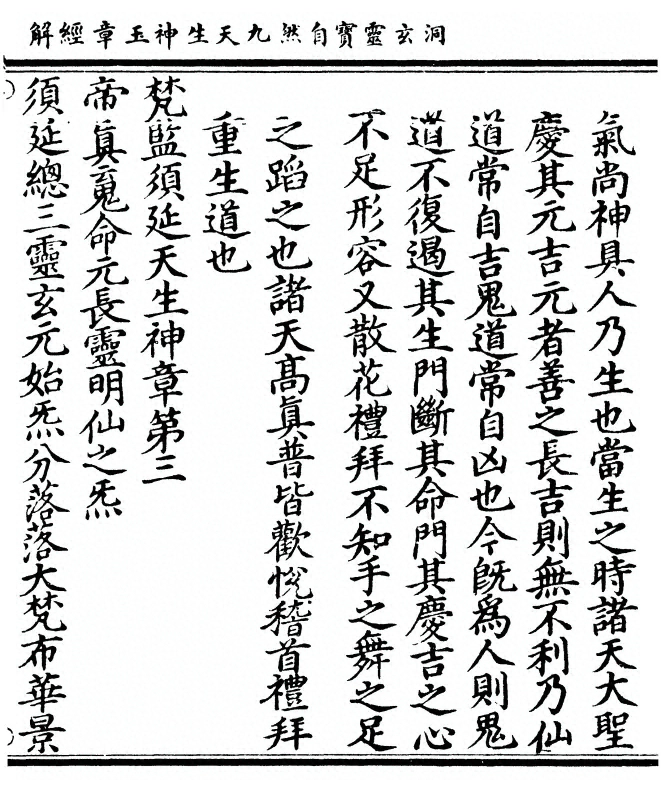 洞玄靈寶自然九天生神玉章經解
氣尚神具人乃生也當生之時諸天大聖
慶其元吉元者善之長吉則無不利乃仙
道常自吉鬼道常自凶也今旣爲人則鬼
道不復遏其生門斷其命門其慶吉之心
不足形容又散花禮拜不知手之舞之足
之蹈之也諸天髙眞普皆歡悅稽首禮拜
重生道也
梵監須延天生神章第三
帝眞䰟命元長靈明仙之炁
須延總三靈玄元始炁分落落大梵布華景